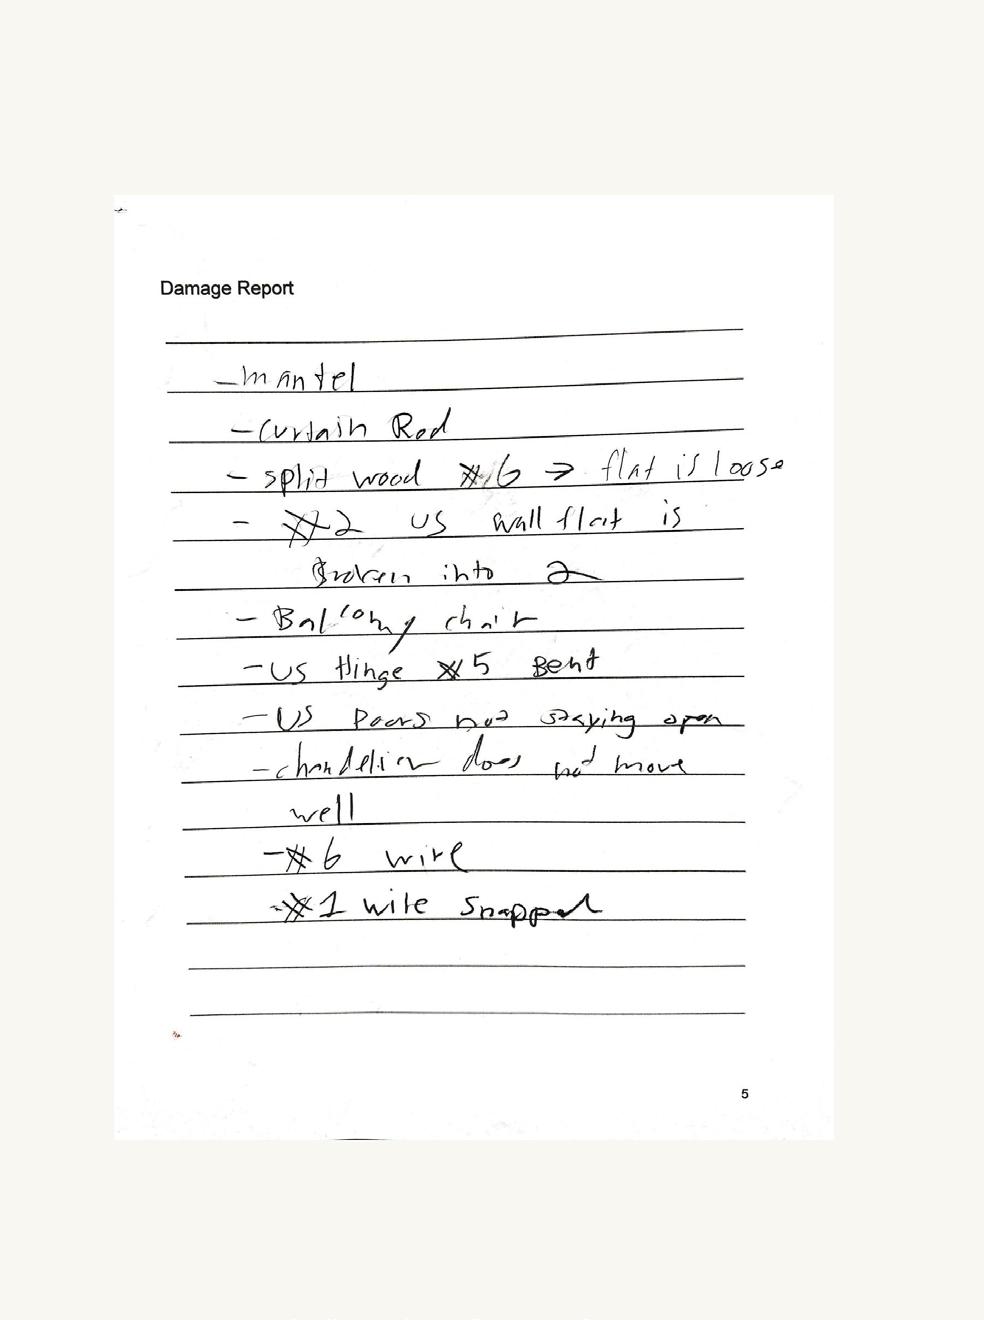 Damage Report
- Mantel
- Curtain Rod
- split wood #6 → flat is loose
- #2 US wall flat is
Broken into 2
- Balcony chair
- US Hinge #5 Bent
- US Doors not staying open
- chandelier does not move
well
- #6 wire
- #1 wire snapped
5